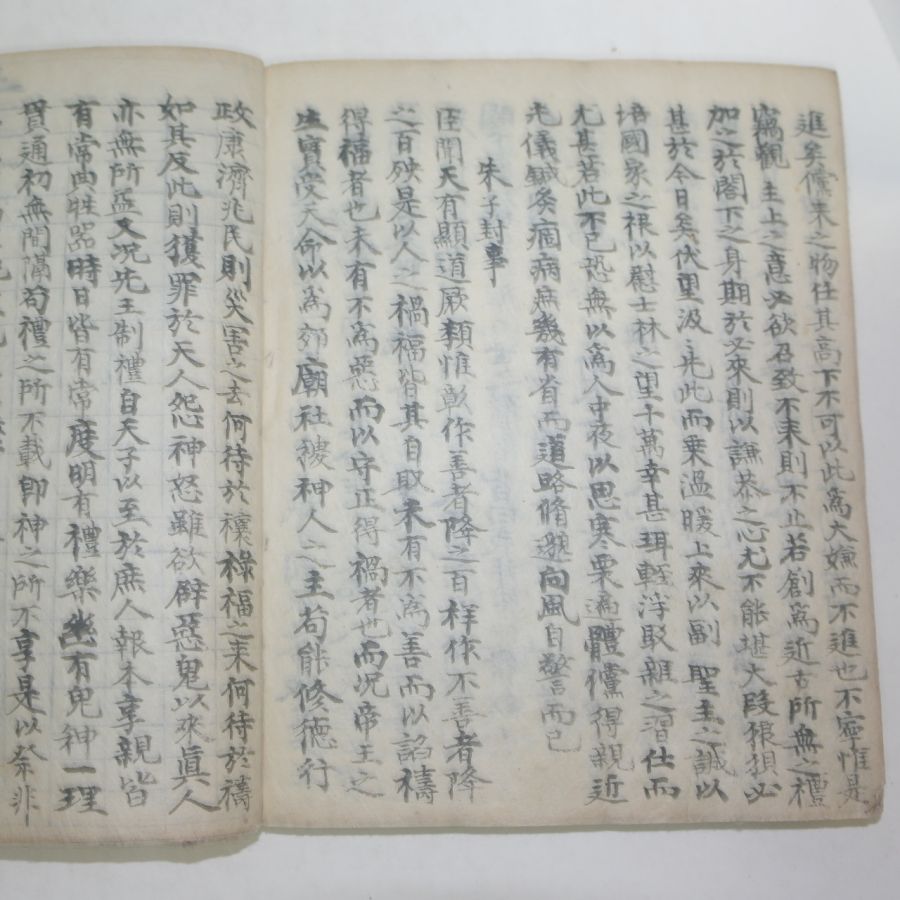 進矣儻來之物任其高下不可以此爲大嫌而不進也不寧惟是
竊觀 主上之意必欲召致不來則不止若創爲近古所無之禮
加之於閤下之身期於必來則以謙恭之心尤不能堪大段狼狽必
甚於今日矣伏望汲 此而乘溫暖上來以副 聖主之誠以
培國家之根以慰士林之望千萬幸甚珥輕浮馭雜之習仕而
尤甚若此不已恐無以爲人中夜以思寒栗遍體儻得親近
光儀鍼灸痼病庶幾有省而道路脩邈向風自警而已
朱子封事
臣聞天有顯道厥類惟彰作善者降之百样作不善者降
之百殃是以人之禍福皆其自取未有不爲善而以諂禱
得福者也未有不爲惡而以守正得禍者也而况帝王之
生實受天命以爲郊廟社稷神人之主苟能修德行
政康濟兆民則災害之去何待於禳祿福之来何待於禱
如其反此則獲罪於天人怨神怒雖欲辟惡鬼以來眞人
亦無所益又况先王制禮自天子以至於庶人報本享親皆
有常典牲器時日皆有常度明有禮樂幽有鬼神一理
貫通初無間隔苟禮之所不載卽神之所不享是以祭非